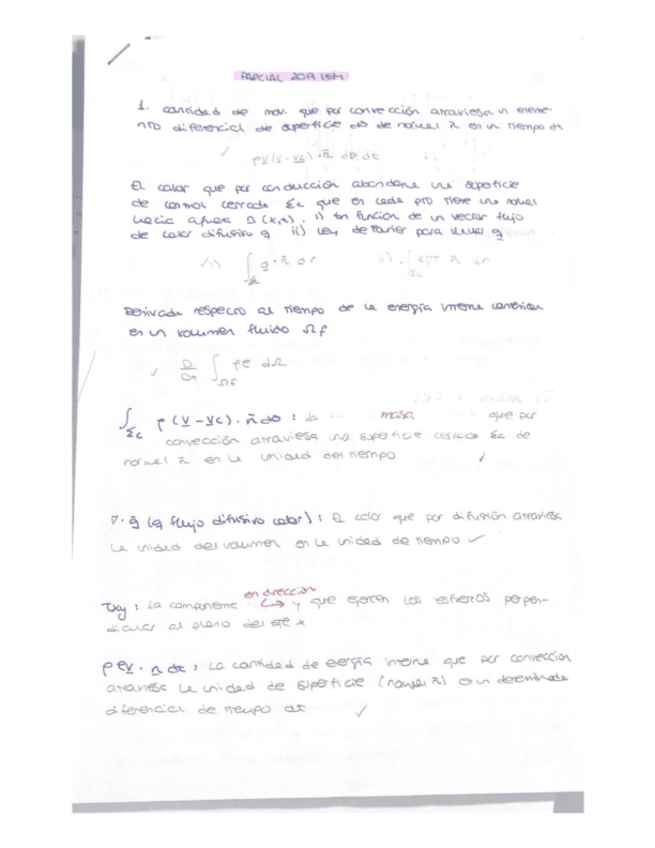 PARCIAL 2017 LEM
1. cantidad de mov. que por convección atraviesa un eleme-
nto diferencial de superficie dσ de normal n̄ en un tiempo dt
ρv(v-vc)·n̄ dσ dt
El calor que por conducción abandona una superficie
de control cerrada Σc que en cada pto tiene una normal
hacia afuera n(x,t). i) En función de un vector flujo
de calor difusivo q ii) Ley de Fourier para evaluar q
i) ∫Σc q·n̄ dσ ii) -∫Σc k∇T n̄ dσ
Derivada respecto al tiempo de la energía interna contenida
en un volumen fluido Ωf
D/Dt ∫Ωf ρe dΩ
∫Σc ρ(v-vc)·n̄ dσ : la masa que por
convección atraviesa una superficie cerrada Σc de
normal n̄ en la unidad del tiempo
∇·q̄ (q flujo difusivo calor) : El calor que por difusión atraviesa
la unidad del volumen en la unidad de tiempo
en dirección
τxy : La componente y que ejercen los esfuerzos perpen-
dicular al plano del eje x
ρev·n dt : La cantidad de energía interna que por convección
atraviesa la unidad de superficie (normal n̄) en un determinado
diferencial de tiempo dt